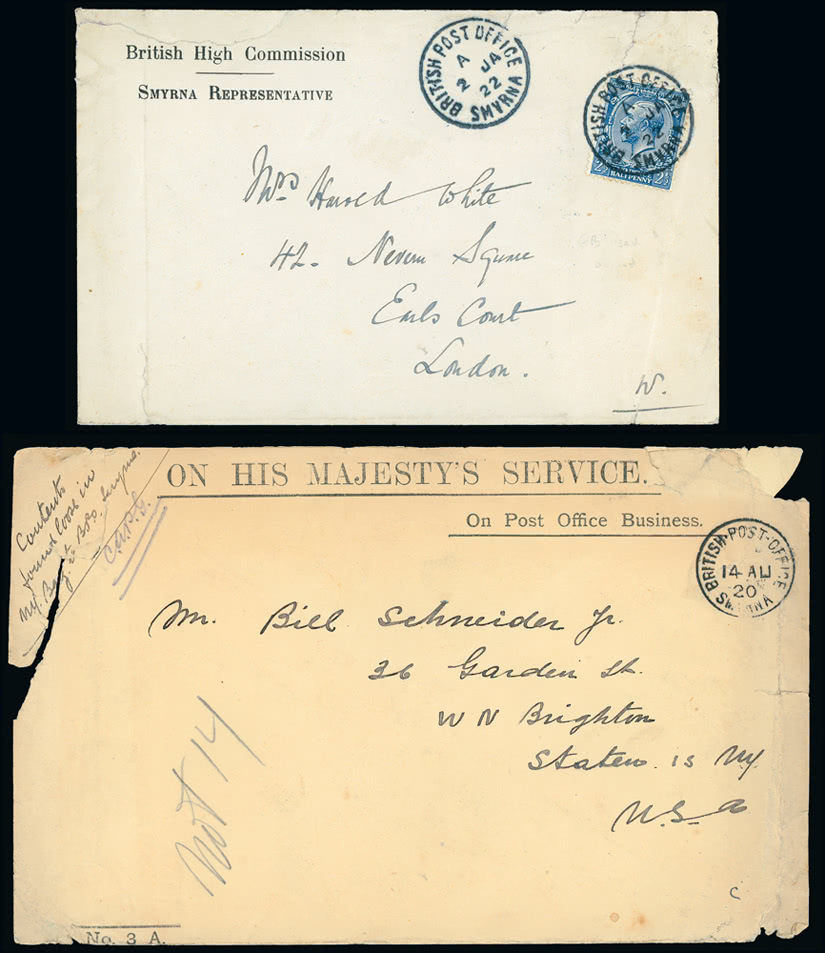 British High Commission
Smyrna Representative
BRITISH POST OFFICE
A
2 JA
22
SMYRNA
BRITISH POST OFFICE
A
JA
22
SMYRNA
HALFPENNY
2½ 2½
Mrs Harold White
42. Nevern Square
Earls Court
London.
W.
ON HIS MAJESTY'S SERVICE.
On Post Office Business.
Contents
found loose in
NY. Bag at BPO Smyrna.
BRITISH·POST·OFFICE
14 AU
20
SMYRNA
Mr. Bill Schneider Jr.
36 Garden St.
W N Brighton
Staten Is NY
U.S.a
Not 14
C
No. 3 A.